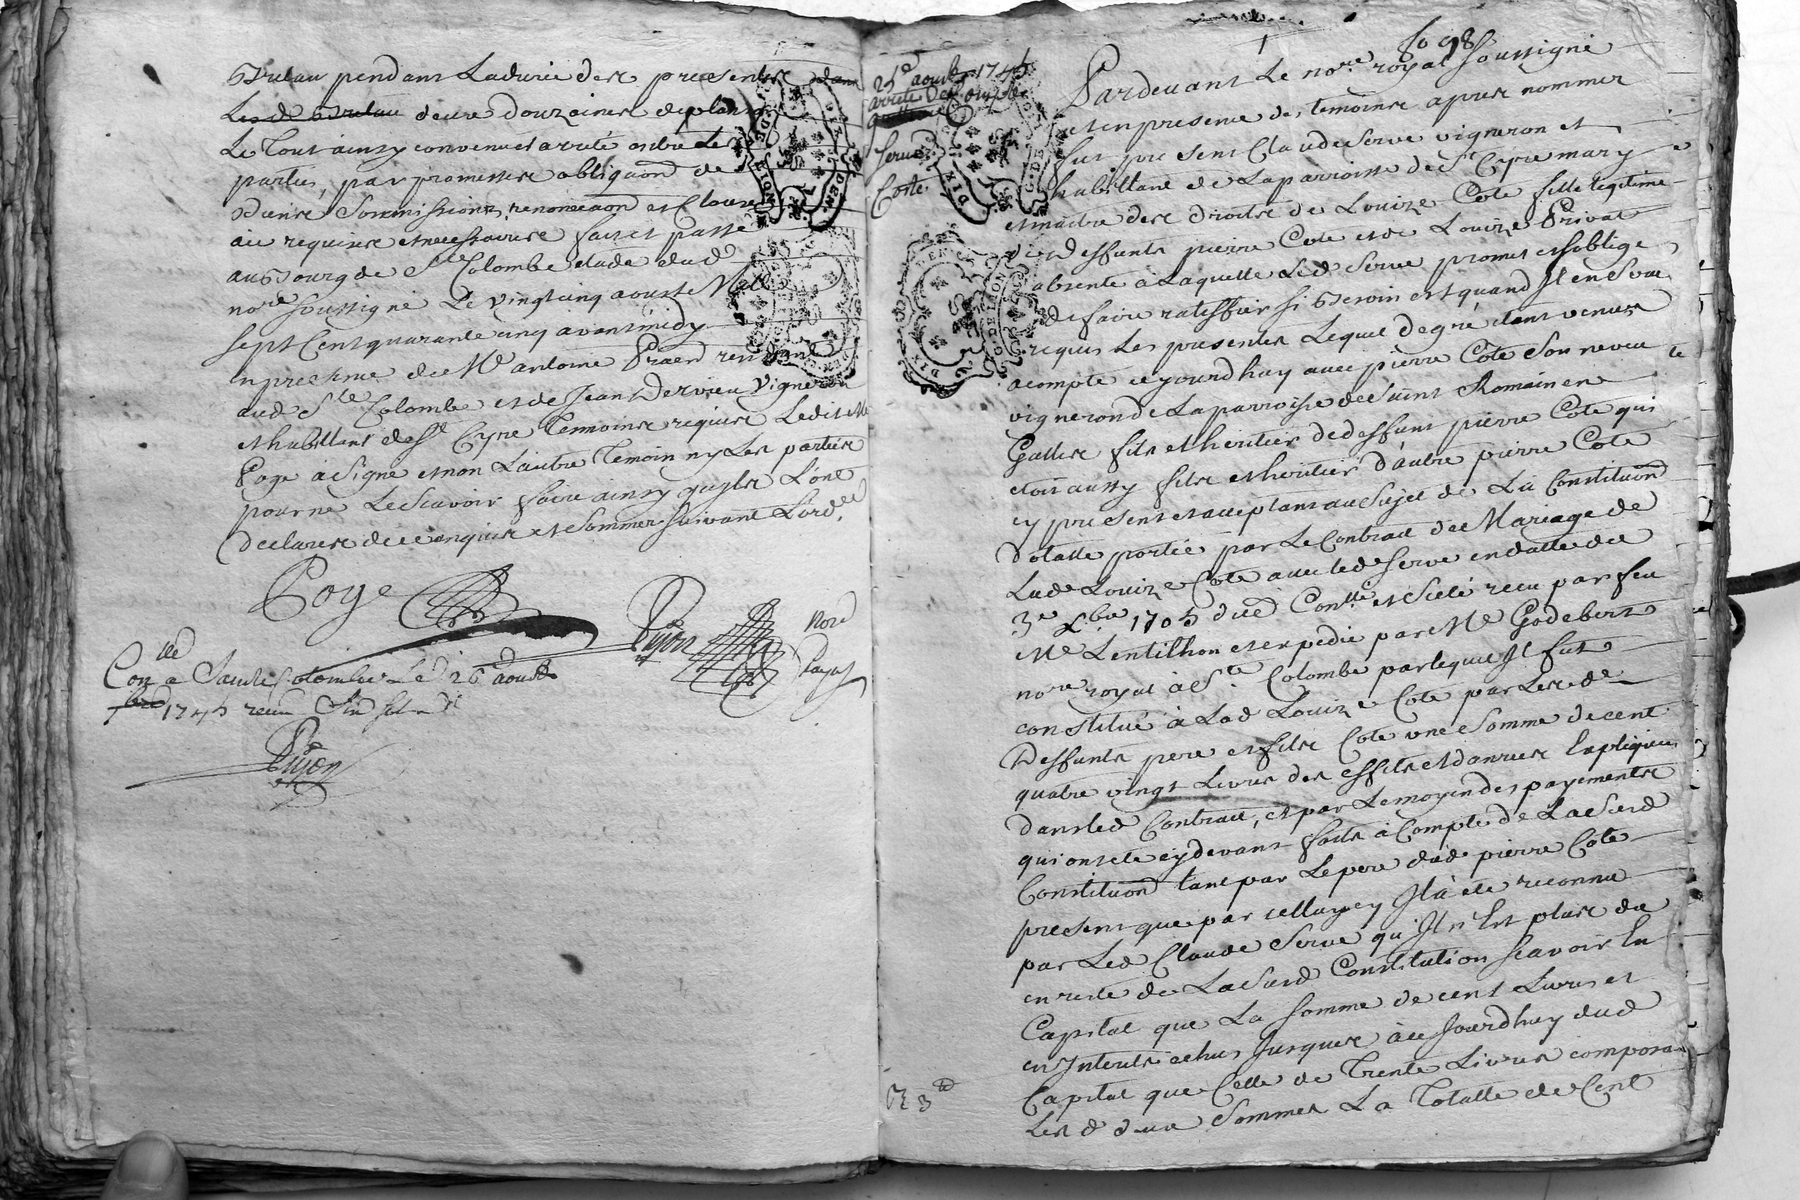 pendant La durée des presentes
deux douzaines de
Le Tout ainsy convenu et arrété entre Les
parties, par promesses obligaõns
Soumissions, renonciaõns et clauses
au requises et necessaires fait et passé
au Bourg de Ste Colombe etude dud
nore soussigné Le vingt cinq aoust Mil
sept Cent quarante cinq avant midy
en presence de Me antoine
aud Ste Colombe et de Jean Dervieu vigneron
et habittant de St Cyre temoins requis Ledit Me
Poge à signé et non L'autre temoin ny Les parties
pour ne Le scavoir faire ainsy qu'ils L'ont
declarés de ce enquis et sommes suivant L'ord.
Poge
Dujon
nore
royal
Conlle a Sainte Colombe Le 26 aoust
1745 recu
Dujon
fo 98
1
25e aoust 1745
arreté de Compte
Serve
Coste
Pardevant Le nore royal soussigné
et en presence des temoins apres nommes
fut present Claude Serve vigneron et
habittant de La parroisse de St Cyre mary
et maitre des droits de Louize Cote fille legitime
de deffunts pierre Cote et de Louize Privat
absente à Laquelle Led Serve promet et s'oblige
de faire rateffier si Besoin est quand Il en sera
requis Les presentes Lequel de gré etant venu
a compte ce jourdhuy avec pierre Cote son neveu
vigneron de La parroisse de Saint Romain en
Galles fils et heritier de deffunt pierre Cote qui
etoit aussy fils et heritier d'autre pierre Cote
cy present et acceptant au sujet de La Constituõn
dotalle portée par Le Contract de Mariage de
Lade Louize Cote avec led Serve en datte du
3e Xbre 1705 dud Conlle et scelé recu par feu
Me Lentilhon et expedié par Me Godebert
nore royal à Ste Colombe par lequel Il fut
constitué à Lad Louize Cote par Lesd
Deffunts pere et fils Cote une somme de cent
quatre vingt Livres des effets et danrées expliquées
dans led Contract, et par Le moyen des payements
qui ont été cy devant faits à Compte de La susd
Constituõn tant par Le pere dud pierre Cote
present que par celluy cy Il a été reconnu
par Led Claude Serve qu'Il n'est plus du
en reste de La susd Constitution scavoir En
Capital que La somme de cent Livres et
en Interets echus Jusques à ce Jourdhuy dud
Capital que Celle de Trente Livres composant
Les d deux sommes La Totalle de Cent